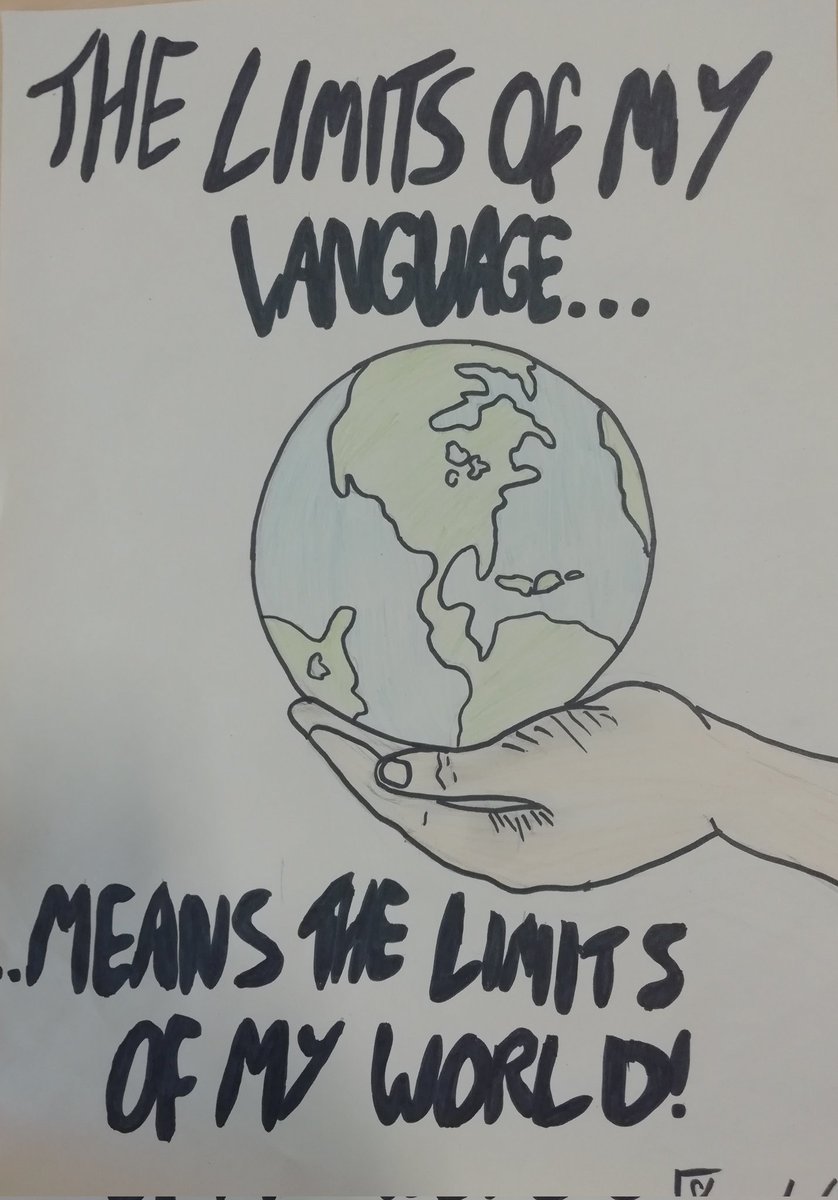 THE LIMITS OF MY
LANGUAGE...
..MEANS THE LIMITS
OF MY WORLD!